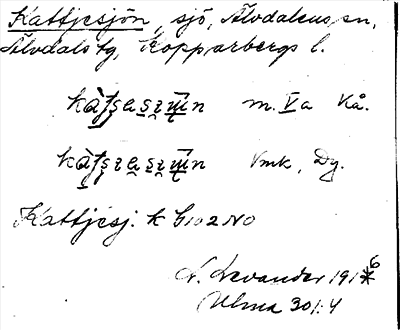 Kattjesjön, sjö, Älvdalens sn,
Älvdals tg, Kopparbergs l.
m. Va Kå.
Vmk, Dy.
Kattjesj. k G 102 NO
L. Levander 1916
Ulma 301:4